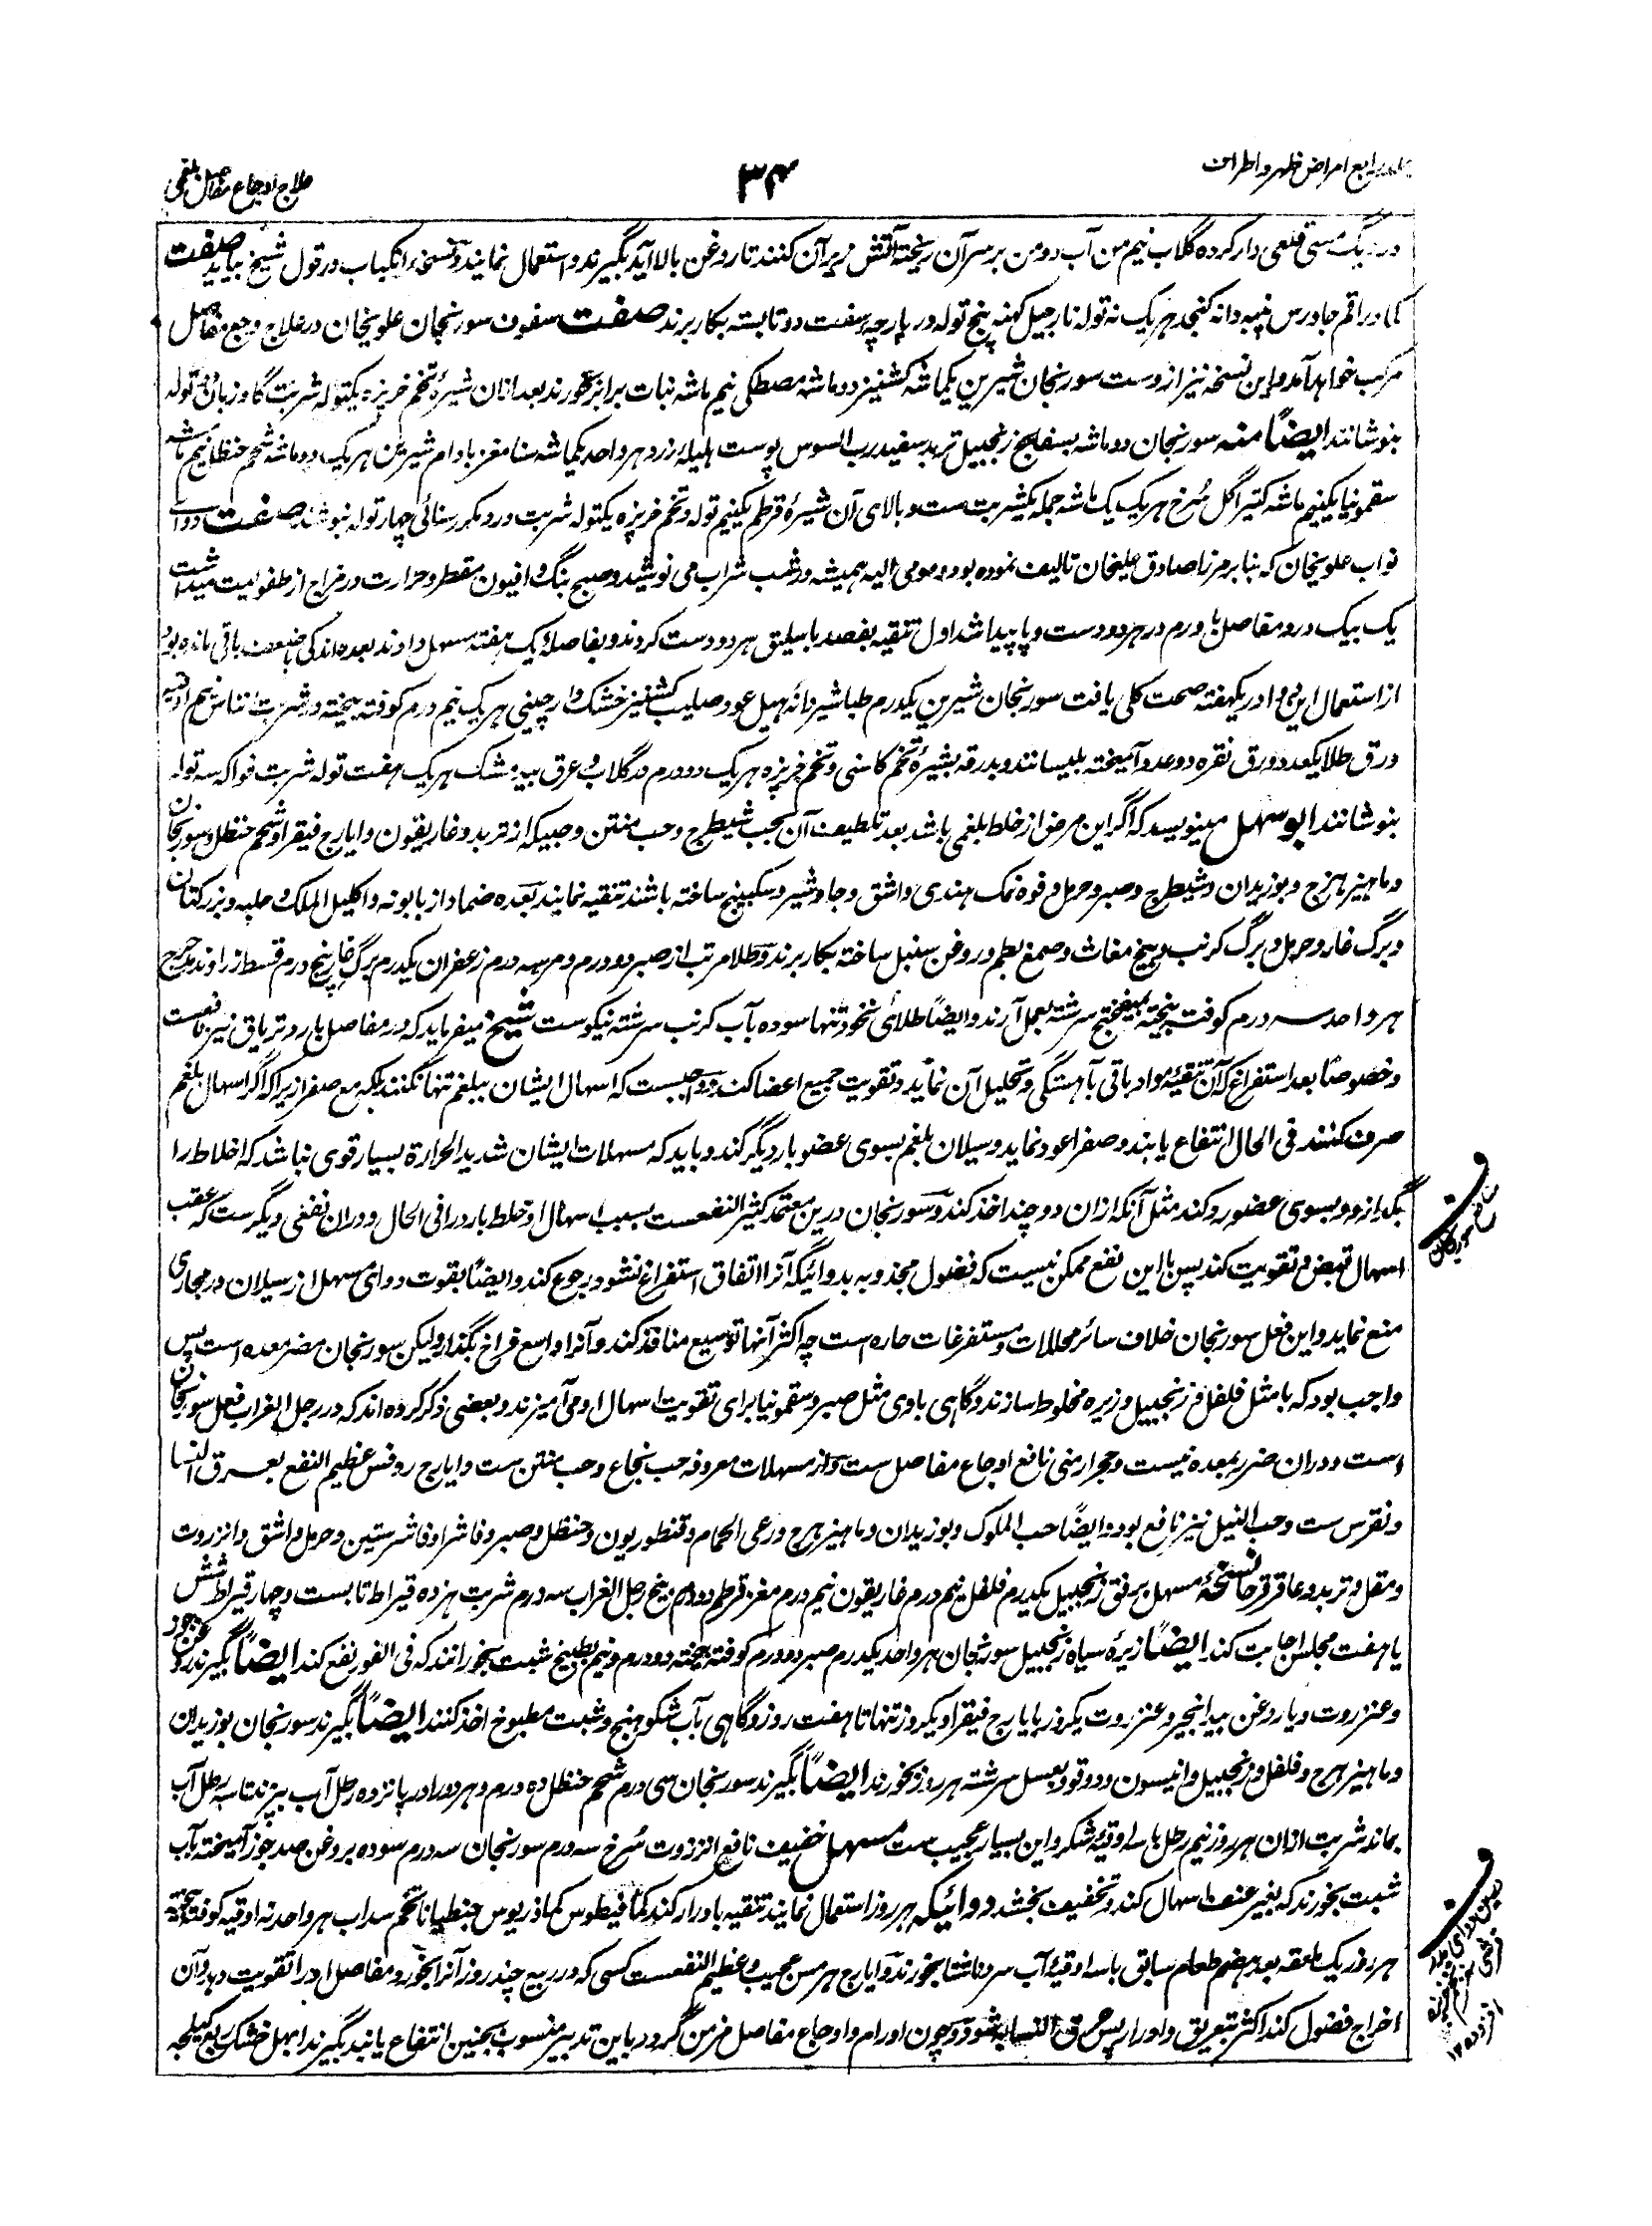 امراض ظهر و اطراف
۳۴
علاج اوجاع مفاصل بلغمی
در دیگ مسی قلعی دار کرده گلاب نیم من آب دو من بر سر آن ریخته آتش زیر آن کنند تا روغن بالا آید بگیرند و استعمال نمایند و نسخه انکباب در قول شیخ بیاید صفت
جاورس پنبه دانه کنجد هر یک نه توله نارجیل کهنه پنج توله در پارچه سفت دو تا بسته بکار برند صفت سفوف سورنجان علویخان در علاج وجع مفاصل
مرکب خواهد آمد و این نسخه نیز ازوست سورنجان شیرین یکماشه کشنیز دو ماشه مصطکی نیم ماشه نبات برابر بخورند بعد ازان شیرهٔ تخم خرپزه یکتوله شربت گاوزبان توله
بنوشانند ایضاً منه سورنجان دو ماشه بسفایج زنجبیل تربد سفید رب السوس پوست هلیله زرد هر واحد یکماشه سنا مغز بادام شیرین هر یک دو ماشه شحم حنظل نیم ماشه
سقمونیا یکنیم ماشه کتیرا گل سرخ هر یک یک ماشه جمله یکشربت ست و بالای آن شیرهٔ قرطم یکنیم توله و تخم خرپزه یکتوله شربت ورد مکرر سنائی چهار توله بنوشند صفت دوای
نواب علویخان که بنا بر مرزا صادق علیخان تالیف نموده بود و مومی الیه همیشه در شب شراب می نوشید و صبح بنگ و افیون مقطر و حرارت در مزاج از طفولیت میداشت
یک بیک درد مفاصل با ورم در هر دو دست و پا پیدا شد اول تنقیه بفصد باسلیق هر دو دست کردند و بفاصله یک هفته مسهل دادند بعده اندکی ضعف باقی مانده بود
از استعمال این دوا در یکهفته صحت کلی یافت سورنجان شیرین یکدرم طباشیر دانه هیل عود صلیب کشنیز خشک دارچینی هر یک نیم درم کوفته بیخته در شربت انناس نیم اوقیه
ورق طلا یکعدد ورق نقره دو عدد آمیخته بلیسانند و بدرقه بشیرهٔ تخم کاسنی و تخم خرپزه هر یک دو درم در گلاب و عرق بید مشک هر یک هفت توله شربت فواکه سه توله
بنوشانند ابو سهل مینویسد که اگر این مرض از خلط بلغمی باشد بعد تلطیف آن بحب شیطرج و حب منتن و حبیکه از تربد و غاریقون و ایارج فیقرا و شحم حنظل و سورنجان
و ماهیزهرج و بوزیدان و شیطرج و صبر و حرمل و فوه نمک هندی و اشق و جاوشیر و سکبینج ساخته باشند تنقیه نمایند بعده ضماد از بابونه و اکلیل الملک و حلبه و بزرکتان
و برگ غار و حرمل و برگ کرنب و بیخ مغاث و صمغ بطم و روغن سنبل ساخته بکار برند و طلا مرتب از صبر دو درم و مر سه درم زعفران یکدرم برگ غار پنج درم قسط زراوند مدحرج
هر واحد سه درم کوفته بیخته بمیفختج سرشته بعمل آرند و ایضاً طلای نخود تنها سوده بآب کرنب سرشته نیکوست شیخ میفرماید که در مفاصل بارد تریاق نیز نافعست
و خصوصاً بعد استفراغ که آن تنقیهٔ مواد باقی بآهستگی و تحلیل آن نماید و تقویت جمیع اعضا کند و واجبست که اسهال ایشان ببلغم تنها نکنند بلکه مع صفرا زیرا که اگر اسهال بلغم
صرف کنند فی الحال انتفاع یابند و صفرا عود نماید و سیلان بلغم بسوی عضو بار دیگر کند و باید که مسهلات ایشان شدید الحرارة بسیار قوی نباشد که اخلاط را
بگدازد و بسوی عضو رد کند مثل آنکه ازان دو چند اخذ کند و سورنجان درین معتمد کثیر النفعست بسبب اسهال او خلط بارد را فی الحال و دران نفعی دیگرست که عقب
اسهال قبض و تقویت کند پس با این نفع ممکن نیست که فضول مجذوبه بدوائیکه آنرا اتفاق استفراغ نشود رجوع کند و ایضاً بقوت دوای مسهل از سیلان در مجاری
منع نماید و این فعل سورنجان خلاف سائر محللات و مستفرغات حاره است چه اکثر آنها توسیع منافذ کند و آنرا واسع فراخ بگذارد لیکن سورنجان مضر معده است پس
واجب بود که با مثل فلفل و زنجبیل و زیره مخلوط سازند و گاهی باوی مثل صبر و سقمونیا برای تقویت اسهال او می آمیزند و بعضی ذکر کرده اند که در رجل الغراب فعل سورنجان
است و دران ضرر بمعده نیست و حجر ارمنی نافع اوجاع مفاصل ست و از مسهلات معروفه حب نجاح و حب منتن ست و ایارج روفس عظیم النفع بعرق النسا
و نقرس ست و حب النیل نیز نافع بود و ایضاً حب الملوک و بوزیدان و ماهیزهرج و رعی الحمام و قنطوریون و حنظل و صبر و فاشرا و فاشرستین و حرمل و اشق و انزروت
و مقل و تربد و عاقرقرحا نسخهٔ مسهل برفق زنجبیل یکدرم فلفل نیم درم غاریقون نیم درم مغز قرطم دو درم بیخ رجل الغراب سه درم شربت هژده قیراط تا بست و چهار قیراط شش
یا هفت مجلس اجابت کند ایضاً زیرهٔ سیاه زنجبیل سورنجان هر واحد یکدرم صبر دو درم کوفته بیخته دو درم و نیم بطبیخ شبت بخورانند که فی الفور نفع کند ایضاً بگیرند روغن جوز
و عنزروت و یا روغن بیدانجیر و عنزروت یکروز با ایارج فیقرا و یکروز تنها تا هفت روز و گاهی بآب شکوهنج و شبت مطبوخ اخذ کنند ایضاً بگیرند سورنجان بوزیدان
و ماهیزهرج و فلفل و زنجبیل و انیسون و دوقو بعسل سرشته هر روز بخورند ایضاً بگیرند سورنجان سی درم شحم حنظل ده درم و هر دو را در پانزده رطل آب بپزند تا سه رطل آب
بماند شربت ازان هر روز نیم رطل با سه اوقیه شکر و این بسیار عجیب ست مسهل خفیف نافع انزروت سرخ سه درم سورنجان سه درم سوده بروغن صد جوز آمیخته بآب
شبت بخورند که بغیر عنف اسهال کند و تخفیف بخشد دوائیکه هر روز استعمال نمایند تنقیه بادرار کند کمافیطوس کماذریوس جنطیانا تخم سداب هر واحد نه اوقیه کوفته بیخته
هر روز یک ملعقه بعد هضم طعام سابق با سه اوقیه آب سرد ناشتا بخورند و ایارج هرمس عجیب و عظیم النفعست کسی که در ربیع چند روز آنرا بخورد مفاصل او را تقویت دهد و ازان
اخراج فضول کند اکثر بتعریق و ادرار پس عرق النسا و چون اورام و اوجاع مفاصل مزمن گردد باین تدبیر منسوب بجنین انتفاع یابند بگیرند ابهل خشک ربع کیلجه